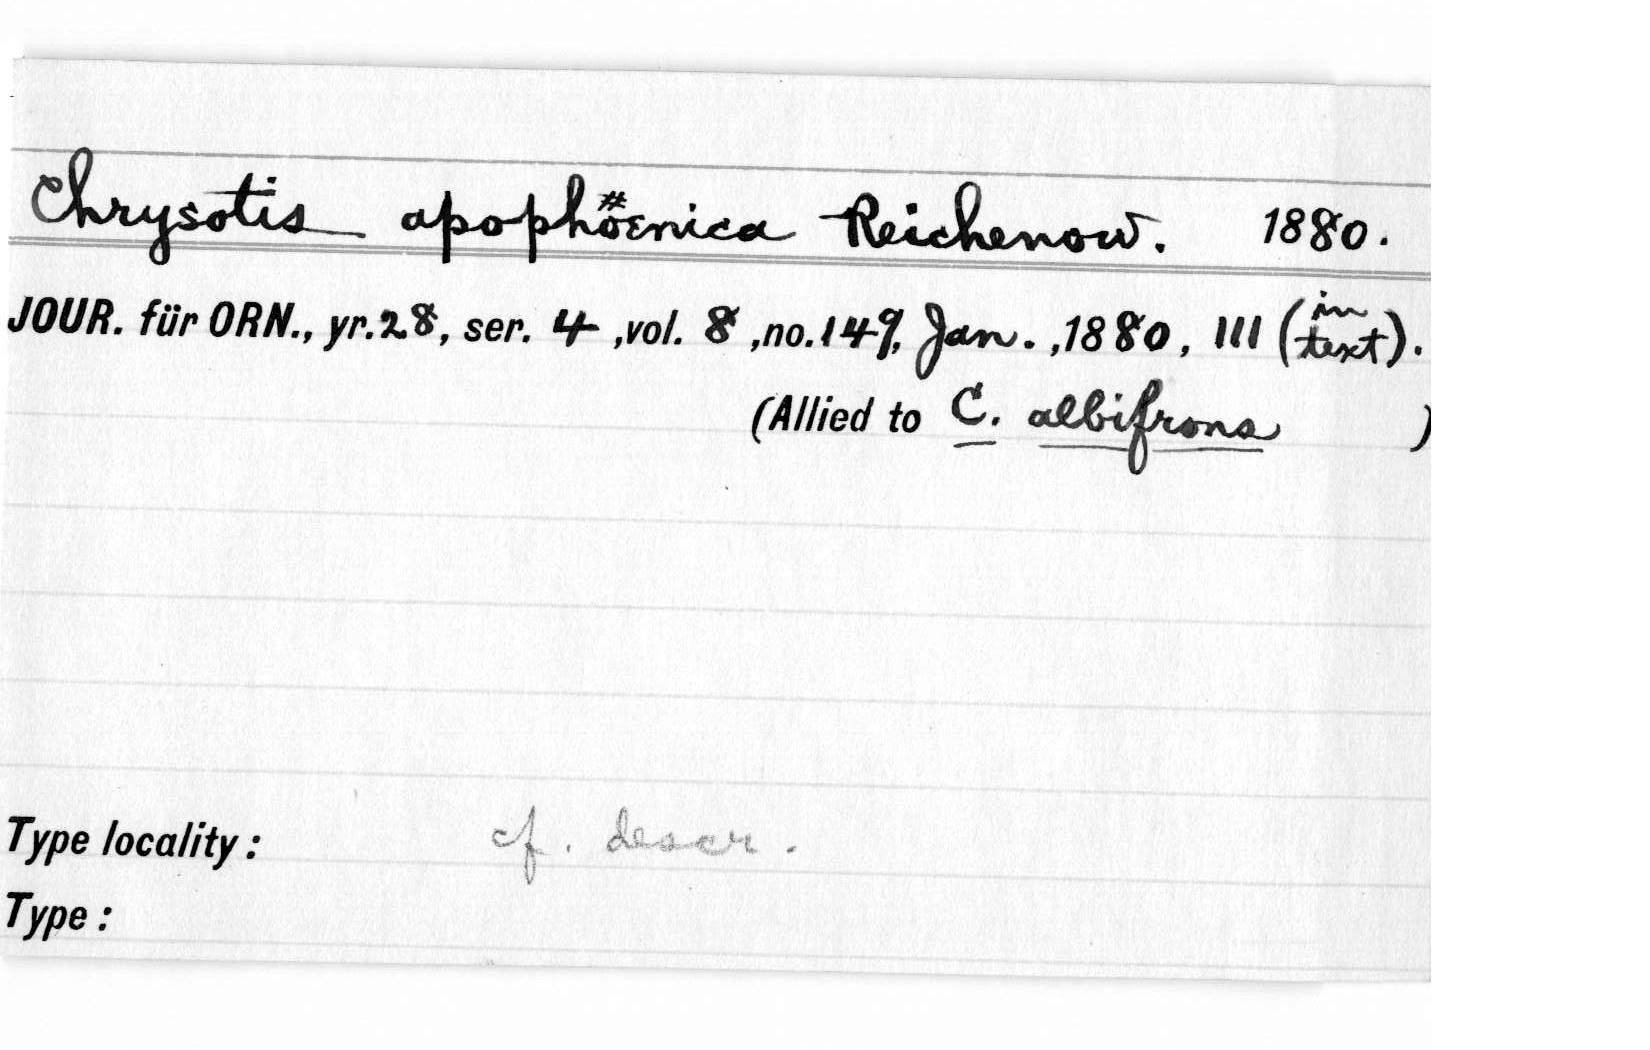 Chrysotis apophöenica Reichenow. 1880.
JOUR. für ORN., yr.28, ser. 4 ,vol. 8 ,no.149, Jan. ,1880, 111 (in text).
(Allied to C. albifrons )
Type locality: cf. descr.
Type: